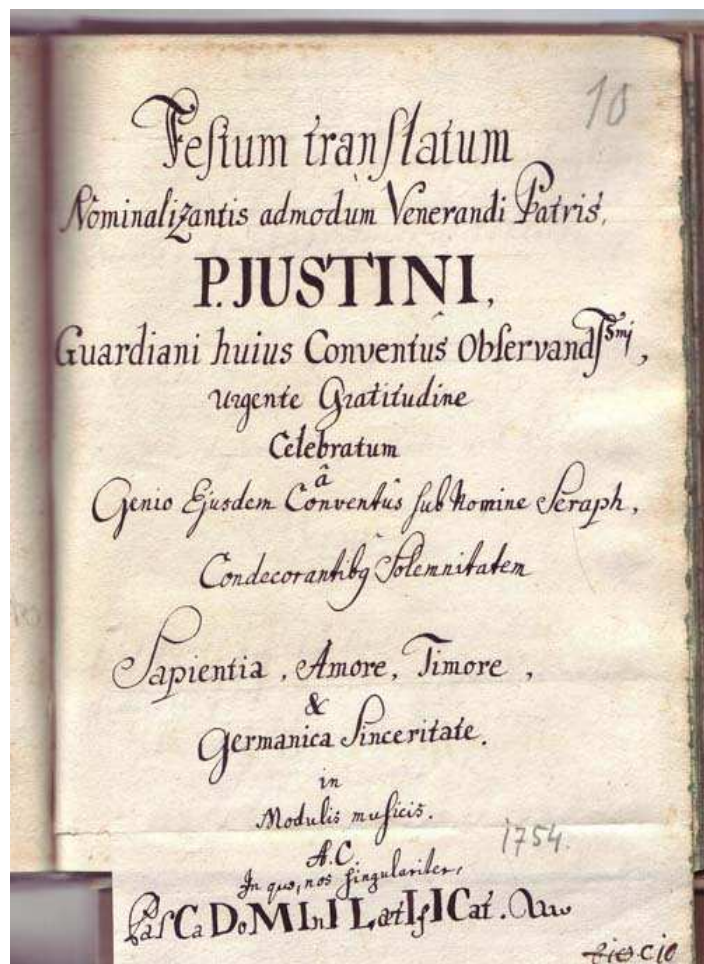 10
Festum translatum
Nominalizantis admodum Venerandi Patris,
P. JUSTINI,
Guardiani huius Conventûs Observandssmi,
urgente Gratitudine
Celebratum
â
Genio Ejusdem Conventûs sub Nomine Seraph,
Condecorantibq Solemnitatem
Sapientia, Amore, Timore,
&
Germanica Sinceritate.
in
Modulis musicis.
1754.
A.C.
In quo, nos singulariter,
PasCa DoMInI LætIfICat.
cio